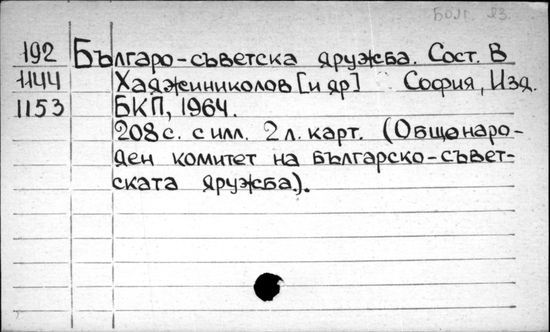 Болг. 23.
192 Българо-съветска дружба. Сост. В
1144 Хаджиниколов [и др] София, Изд.
1153 БКП, 1964.
208 с. с илл. 2 л. карт. (Общонаро-
ден комитет на българско-съвет-
ската дружба).